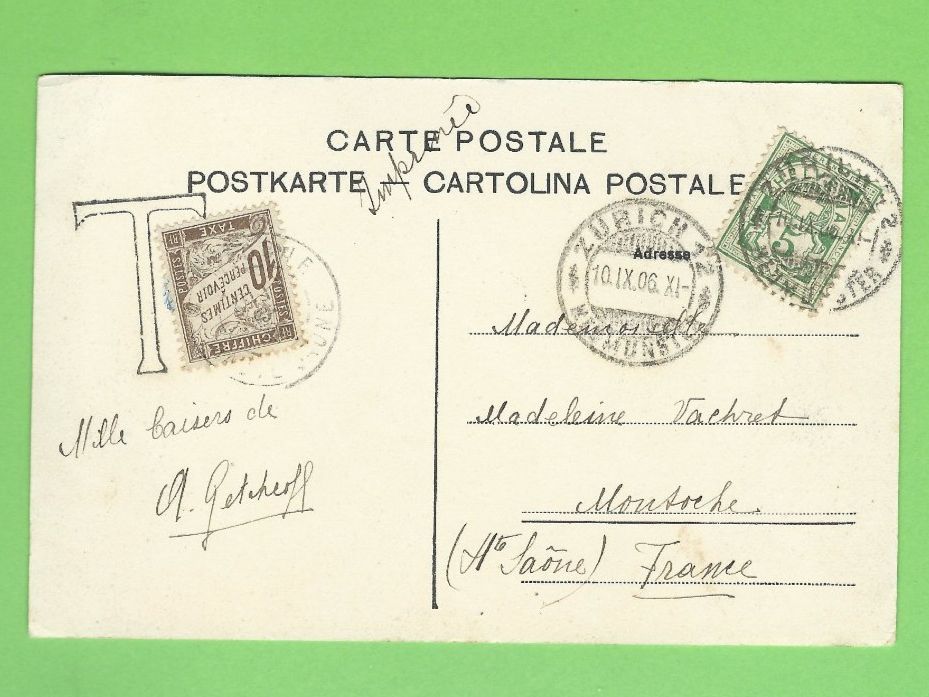 CARTE POSTALE
POSTKARTE CARTOLINA POSTALE
Imprimée
T
CHIFFRE TAXE
10 CENTIMES
PERCEVOIR
POSTES
RF
ZÜRICH 12
10.IX.06. XI-
Adresse
5
Mademoiselle
Madeleine Vachret
Montoche
(Hte Saône) France
Mille baisers de
A. Getcheoff